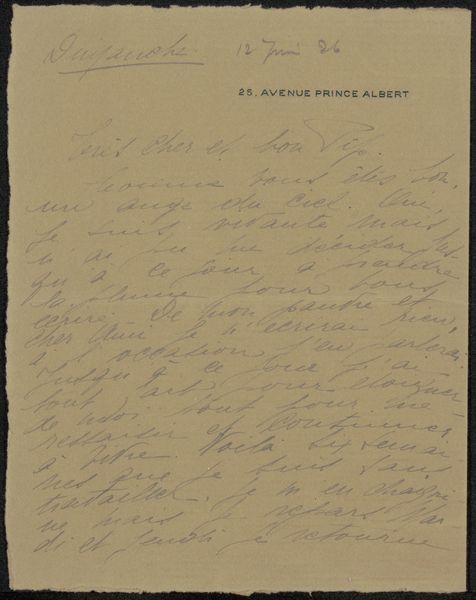 Dimanche 12 Juin 26
25, AVENUE PRINCE ALBERT
Très cher et bon Pip.
Comme vous êtes bon,
un ange du ciel. Oui,
je suis vivante mais
n'ai pu me décider jus
qu'à ce jour à prendre
la plume pour vous
écrire. De mon pauvre et
cher Ami je n'écrirai rien,
à l'occasion j'en parlerai
Jusqu'à ce jour j'ai
tout fait pour éloigner
de moi tout pour me
ressaisir et continuer
à vivre. Voilà six semai
nes que je suis sans
travailler. Je m'en chagri
ne mais je repars Mar
di et Jeudi je retourne